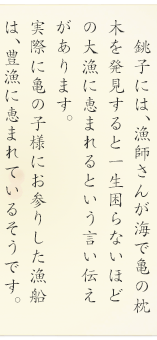 銚子には、漁師さんが海で亀の枕
木を発見すると一生困らないほど
の大漁に恵まれるという言い伝え
があります。
実際に亀の子様にお参りした漁船
は、豊漁に恵まれているそうです。